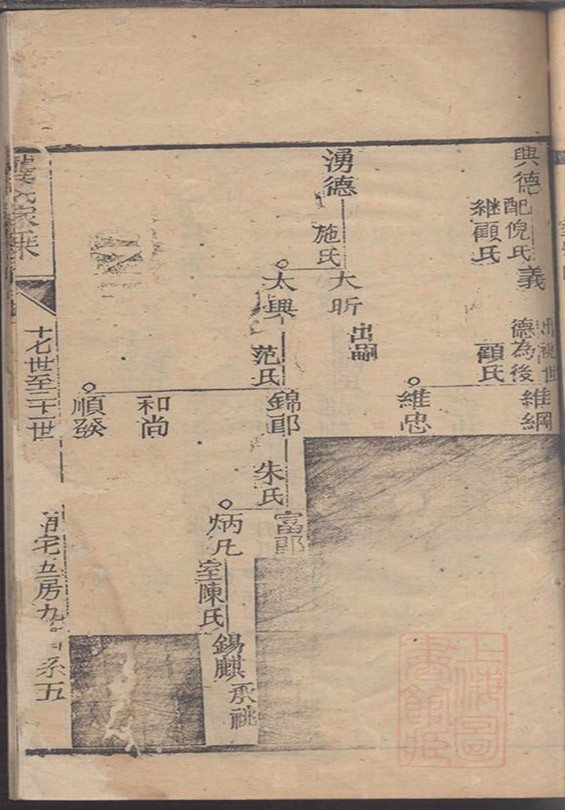 興德
配倪氏
継顧氏
義
出祧世
德為後
顧氏
維綱
維忠
湧德
施氏
大昕
出嗣
太興
范氏
錦郎
朱氏
富郎
炳凡
室陳氏
錫麒
承祧
和尚
順發
龔氏家乘
十七世至二十一世
宅五房九
系五
上海圖
書館藏